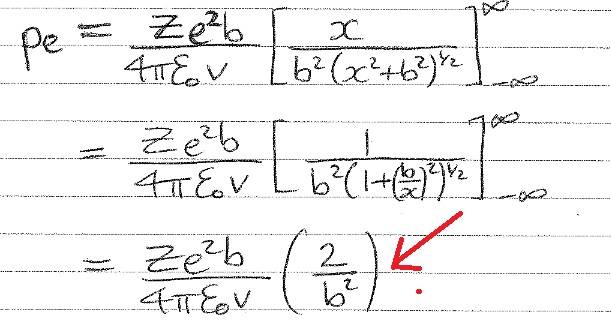 pe = Ze²b / 4πε₀v [ x / b²(x²+b²)^½ ]^∞_-∞
= Ze²b / 4πε₀v [ 1 / b²(1+(b/x)²)^½ ]^∞_-∞
= Ze²b / 4πε₀v ( 2 / b² )